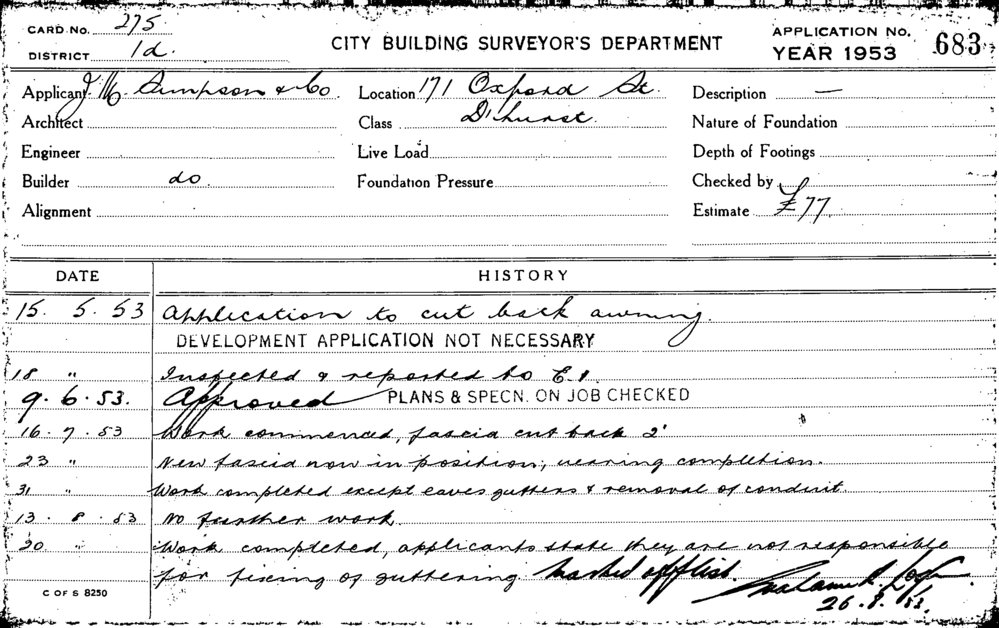 CARD No. 275
DISTRICT 1d.
CITY BUILDING SURVEYOR'S DEPARTMENT
APPLICATION No. 683
YEAR 1953
Applicant J. W. Simpson & Co. Location 171 Oxford St. Description —
Architect Class D'hurst. Nature of Foundation
Engineer Live Load Depth of Footings
Builder do. Foundation Pressure Checked by
Alignment Estimate £77
DATE HISTORY
15. 5. 53 Application to cut back awning.
DEVELOPMENT APPLICATION NOT NECESSARY
18 " Inspected & reported to E.1.
9. 6. 53. Approved PLANS & SPECN. ON JOB CHECKED
16. 7. 53 Work commenced, fascia cut back 2'
23 " New fascia now in position, nearing completion.
31 " Work completed except eaves gutters & removal of conduit.
13. 8. 53 No further work.
20 " Work completed, applicants state they are not responsible
for fixing of guttering. Marked off list.
26. 8. 53.
C OF S 8250